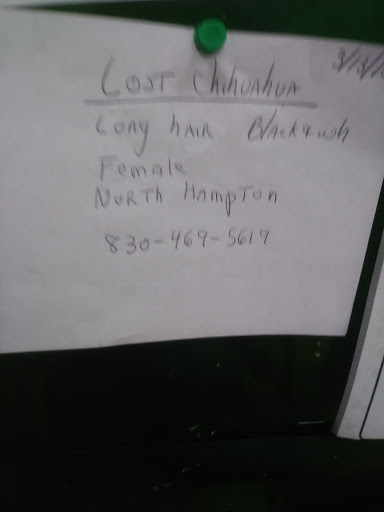 3/13/1
Lost Chihuahua
Long hair Black & wh
Female
North Hampton
830-469-5619